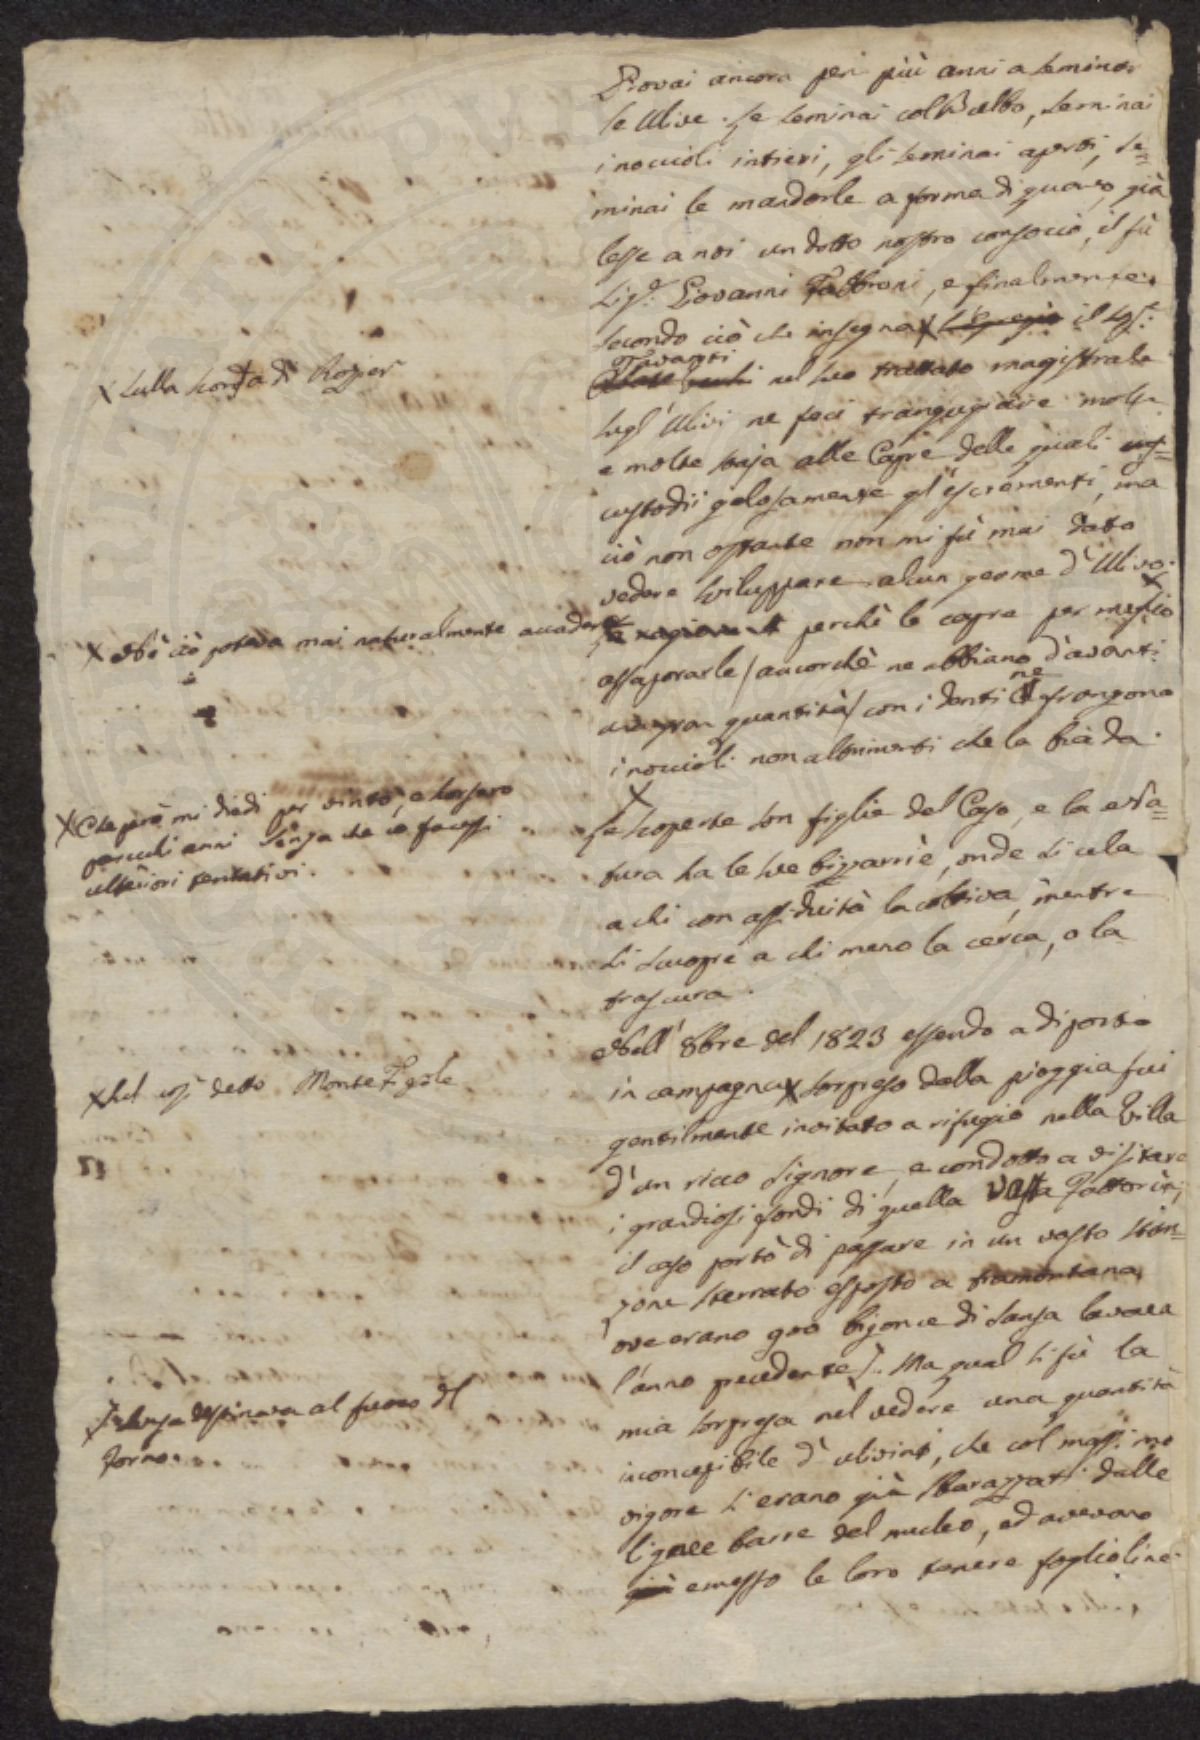 Provai ancora per più anni a seminar
le Ulive. Le seminai coll'
seminai
i noccioli intieri, gli seminai aperti, se=
minai le mandorle a forma di quanto già
lesse a noi un dotto nostro consocio, il fù
Sigre. Giovanni Fabbroni, e finalmente
secondo ciò che insegna X l'Egregio il Sigr.
X sulla scorta di Rozier
Tavanti
nel suo trattato magistrale
sugl'Ulivi ne feci trangugiare molte
e molte staja alle Capre delle quali
custodii gelosamente gl'escrementi, ma
ciò non ostante non mi fù mai dato
vedere sviluppare alcun germe d'Ulivo.
X Nè ciò poteva mai naturalmente accadere
perchè le capre per meglio
assaporarle / ancorchè ne abbiano d'avanti
una gran quantità / con i denti ne frangono
i noccioli non altrimenti che la biada.
X Che però mi diedi per vinto, e scorsero
parecchi anni senza che io facessi
ulteriori tentativi.
X
Le scoperte son figlie del Caso, e la na=
tura ha le sue bizzarrie, onde si cela
a chi con assiduità la coltiva, mentre
si scuopre a chi meno la cerca, o la
trascura.
Nell'8bre del 1823 essendo a diporto
in campagna X sorpreso dalla pioggia fui
X sul così detto Monte Figole
gentilmente invitato a rifugio nella Villa
d'un ricco Signore, e condotto a visitare
i grandiosi fondi di quella vasta Fattoria,
il caso portò di passare in un vasto stan=
zone sterrato esposto a tramontana,
ove erano 900 bigonce di sansa lavata
l'anno precedente. Ma qual si fù la
X sansa destinata al fuoco del
forno.
mia sorpresa nel vedere una quantità
inconcepibile d'ulivini, che col massimo
vigore s'erano già sbarazzati dalle
lignee barre del nucleo, ed avevano
già emesso le loro tenere foglioline.